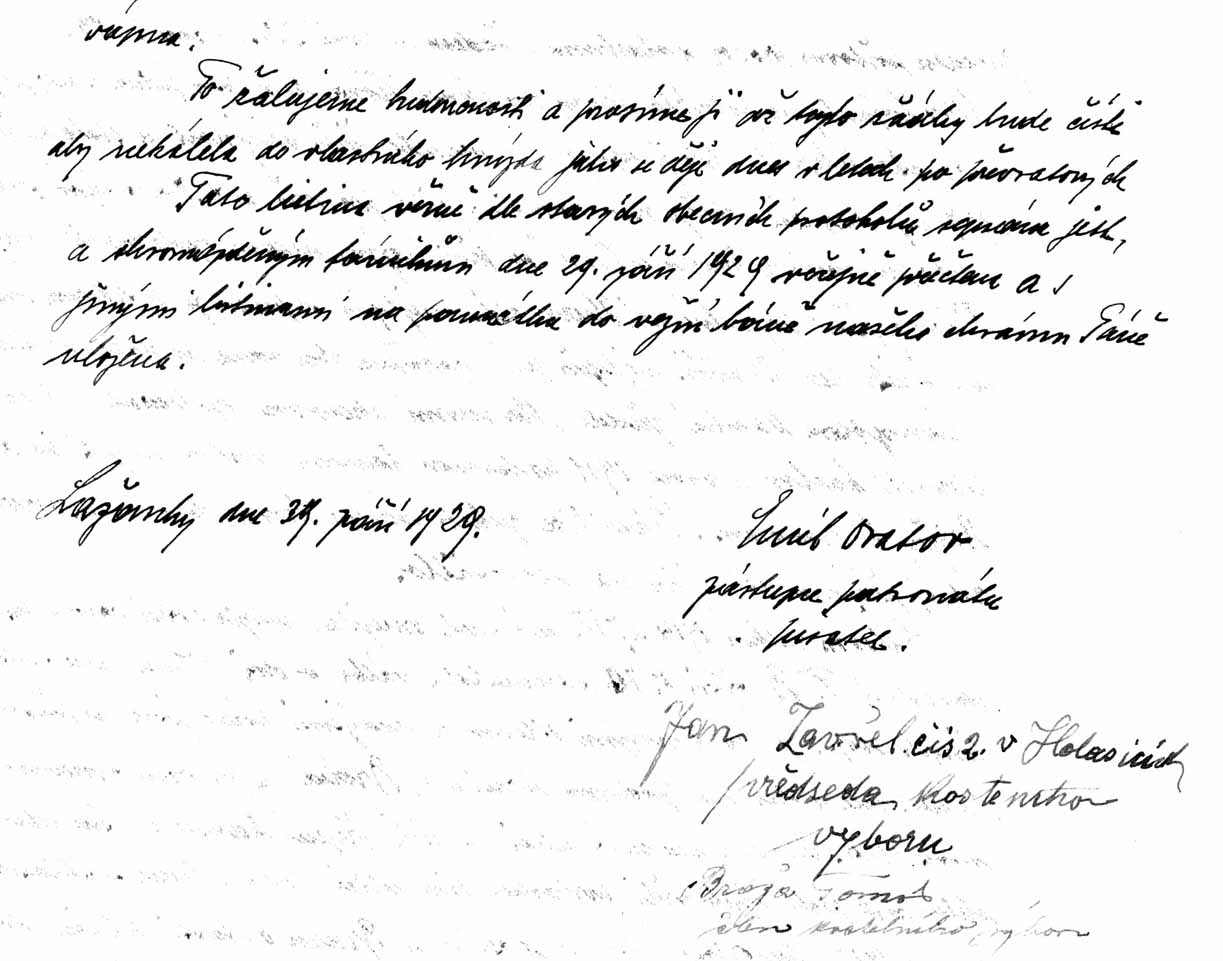 vápna.
To žalujeme budoucnosti a prosíme ji již tyto řádky bude čísti
aby nekálela do vlastního hnízda jako se děje dnes v letech po převratových
Tato listina věrně dle starých obecních protokolů sepsána jest,
a shromážděným farníkům dne 29. září 1929 veřejně přečtena a s
jinými listinami na památku do věžní báně našeho chrámu Páně
vložena.
Lažánky dne 30. září 1929.
Emil Orator
zástupce patronátu
pisatel.
Jan Zavřel čís 2. v Holasicích
předseda Kostelního
vyboru
Tomáš
člen kostelního výboru